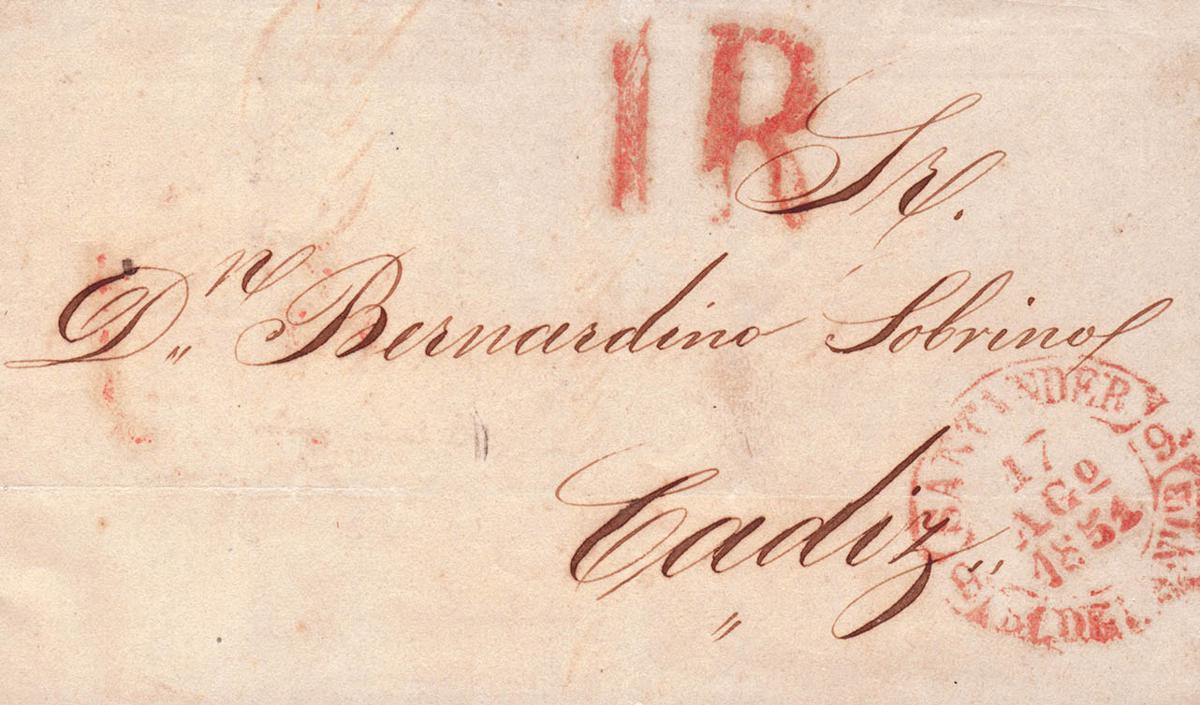 1R
Sr.
D.n Bernardino Sobrino
Cadiz
SANTANDER
17
AGO
185